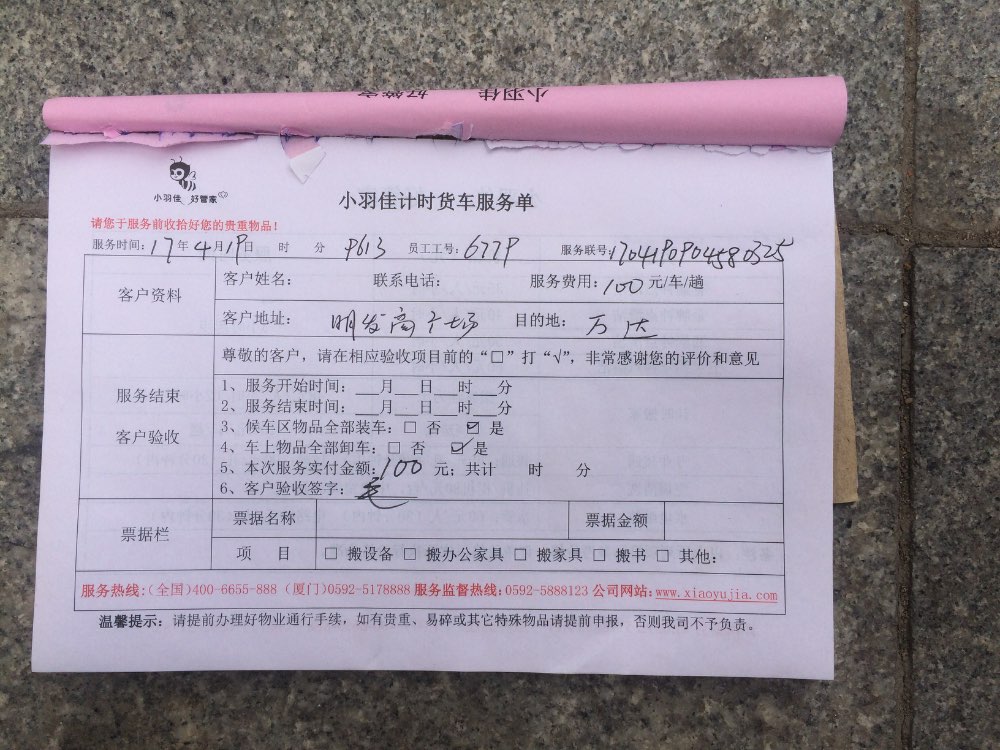 小羽佳 好管家
小羽佳 好管家
小羽佳计时货车服务单
请您于服务前收拾好您的贵重物品!
服务时间:17年4月19日 时 分 9613 员工工号:6779 服务联号:1704190904580325
客户资料
客户姓名: 联系电话: 服务费用:100元/车/趟
客户地址: 明发商广场 目的地: 万达
服务结束
客户验收
尊敬的客户,请在相应验收项目前的“□”打“√”,非常感谢您的评价和意见
1、服务开始时间:___月___日___时___分
2、服务结束时间:___月___日___时___分
3、候车区物品全部装车:□ 否 ☑ 是
4、车上物品全部卸车:□ 否 ☑ 是
5、本次服务实付金额:100 元;共计 时 分
6、客户验收签字:
票据栏
票据名称 票据金额
项 目 □ 搬设备 □ 搬办公家具 □ 搬家具 □ 搬书 □ 其他:
服务热线:(全国)400-6655-888 (厦门)0592-5178888 服务监督热线:0592-5888123 公司网站:www.xiaoyujia.com
温馨提示:请提前办理好物业通行手续,如有贵重、易碎或其它特殊物品请提前申报,否则我司不予负责。